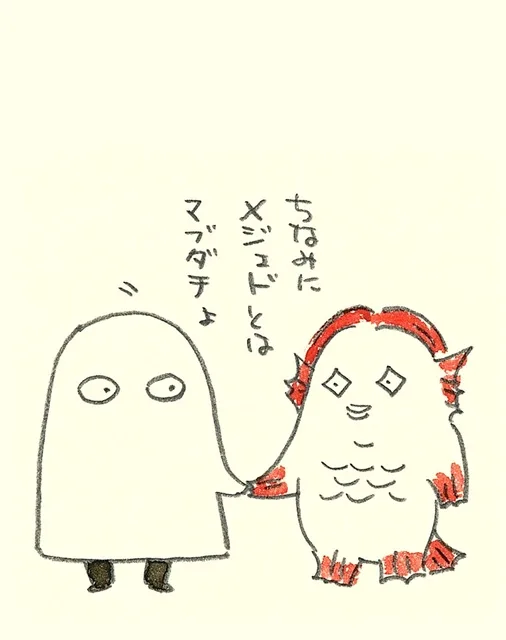 ちなみに
メジェドとは
マブダチよ